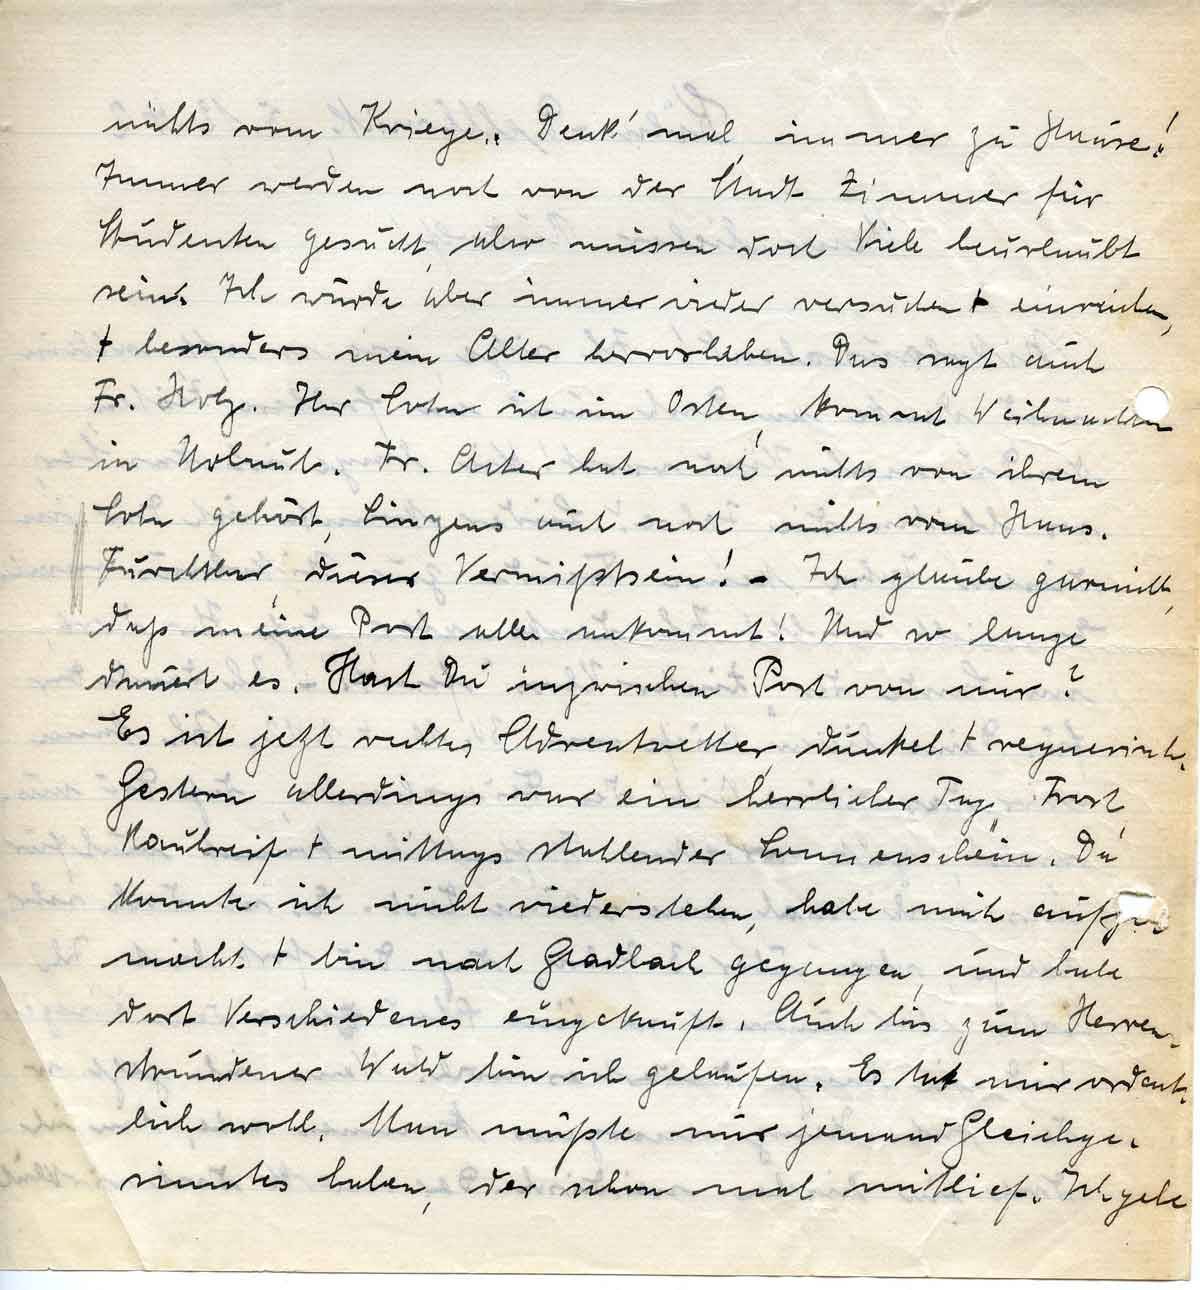 nichts vom Kriege. Denk' mal, immer zu Hause!
Immer werden noch von der Stadt Zimmer für
Studenten gesucht, also müssen doch Viele beurlaubt
sein. Ich würde aber immer wieder versuchen + einreichen,
+ besonders mein Alter hervorheben. Das sagt auch
Fr. Holz. Ihr Sohn ist im Osten, kommt Weihnachten
in Urlaub. Fr. Aster hat noch nichts von ihrem
Sohn gehört, Linzens auch noch nichts vom Hans.
Furchtbar, dieses Vermißtsein! – Ich glaube garnicht,
daß meine Post alle ankommt! Und so lange
dauert es. Hast Du inzwischen Post von mir?
Es ist jetzt rechtes Adventwetter, dunkel + regnerisch.
Gestern allerdings war ein herrlicher Tag. Frost,
Rauhreif + mittags strahlender Sonnenschein. Da
konnte ich nicht wiederstehen, habe mich aufge
macht + bin nach Gladbach gegangen, und habe
dort Verschiedenes eingekauft. Auch bis zum Herren-
strundener Wald bin ich gelaufen. Es tat mir ordent-
lich wohl. Man müßte nur jemand Gleichge-
sinntes haben, der schon mal mitlief. Ich gebe